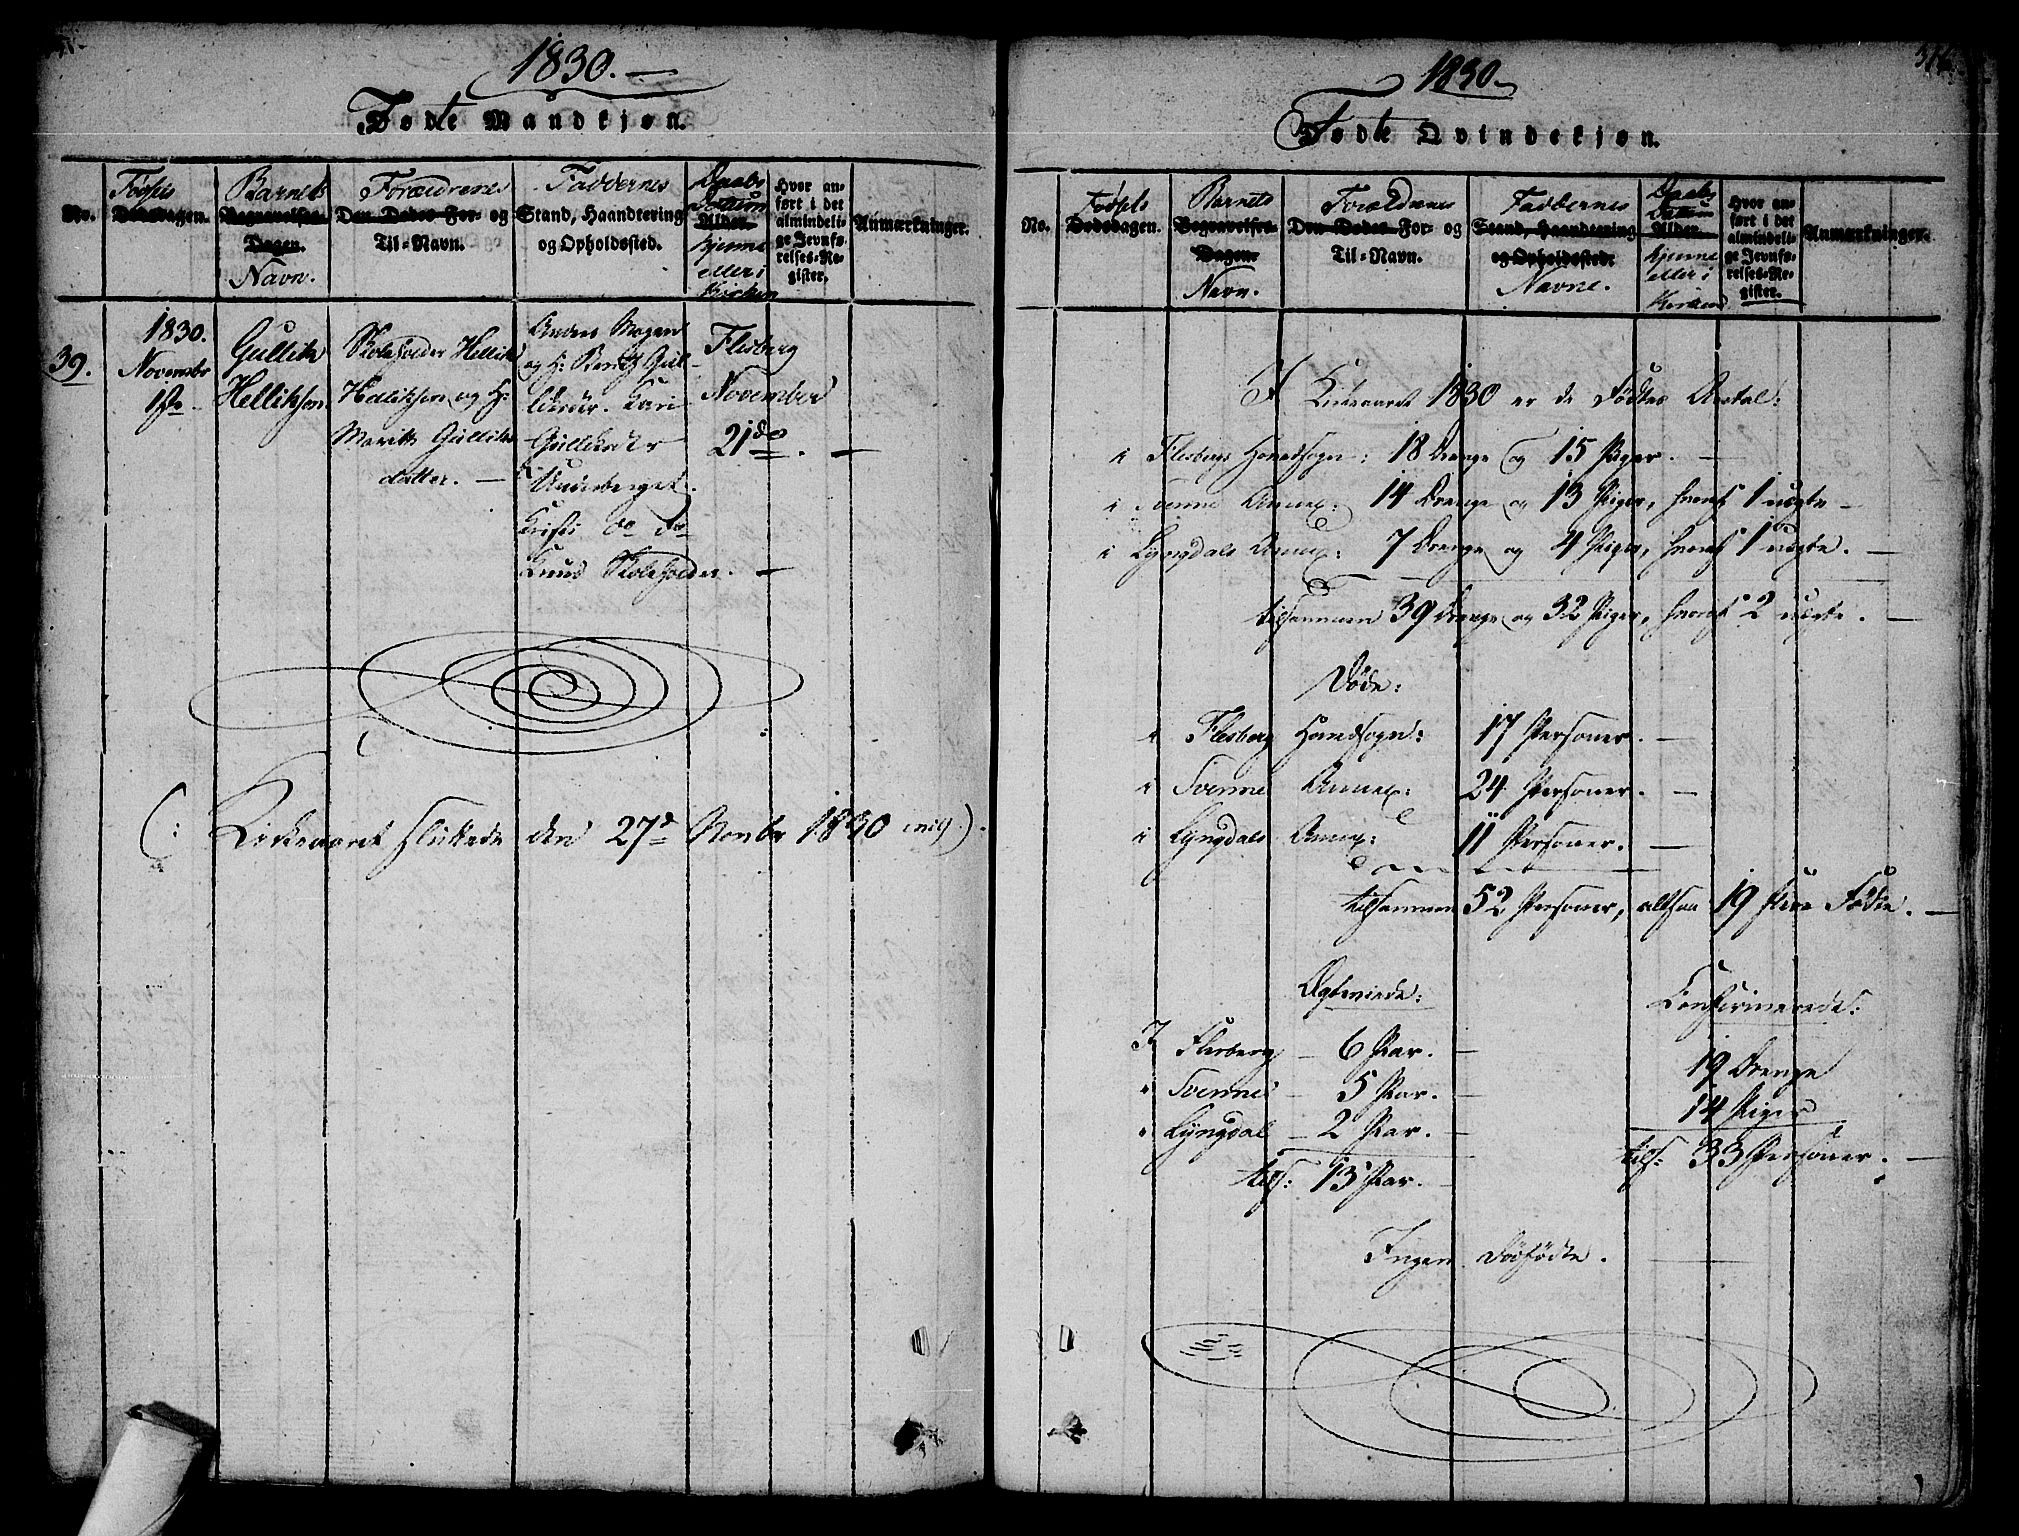 1830.
Fødte Mandkjøn.
No.
Fødsels
Dødsdagen.
Barnets
Begravelses-
Dagen.
Navn.
Forældrenes
Den Dødes For- og
Til-Navn.
Faddernes
Stand, Haandtering
og Opholdssted.
Daabs
Datum
Alder.
hjemme
eller i
Kirken
Hvor an-
ført i det
almindeli-
ge Jevnfø-
relses-Re-
gister.
Anmærkninger.
39.
1830.
Novembr
1ste
Gullik
Hellikson.
Skoleholder Hellik
Hellikson og H:
Marith Gulliks
datter. —
Anders Mogen
og H: Berith Gul-
Kari
Gulliksdtr
Knud Skoleholder. —
Flesberg
November
21de. —
(: Kirkeaaret sluttede den 27d Novbr 1830 incl.).
1830.
Fødte Qvindekjøn.
No.
Fødsels
Dødsdagen.
Barnets
Begravelses-
Dagen.
Navn.
Forældrenes
Den Dødes For- og
Til-Navn.
Faddernes
Stand, Haandtering
og Opholdssted.
Navne.
Daabs
Datum
Alder.
hjemme
eller i
Kirken
Hvor an-
ført i det
almindeli-
ge Jevnfø-
relses-Re-
gister.
Anmærkninger.
I Kirkeaaret 1830 er de Fødtes Antal:
i Flesbergs Hovedsogn: 18 Drenge og 15 Piger. —
i Svenne Annex: 14 Drenge og 13 Piger, hvoraf 1 uægte —
i Lyngdals Annex: 7 Drenge og 4 Piger, hvoraf 1 uægte. —
tilsammen 39 Drenge og 32 Piger, hvoraf 2 uægte. —
Døde:
i Flesberg Hovedsogn: 17 Personer. —
i Svenne Annex: 24 Personer. —
i Lyngdals Annex: 11 Personer. —
tilsammen 52 Personer, altsaa 19 flere Fødte. —
Ægteviede:
I Flesberg — 6 Par. —
" Svenne — 5 Par. —
" Lyngdal — 2 Par. —
tils: 13 Par. —
Confirmerede:
19 Drenge
14 Piger
tils: 33 Personer. —
Ingen Dødfødte. —